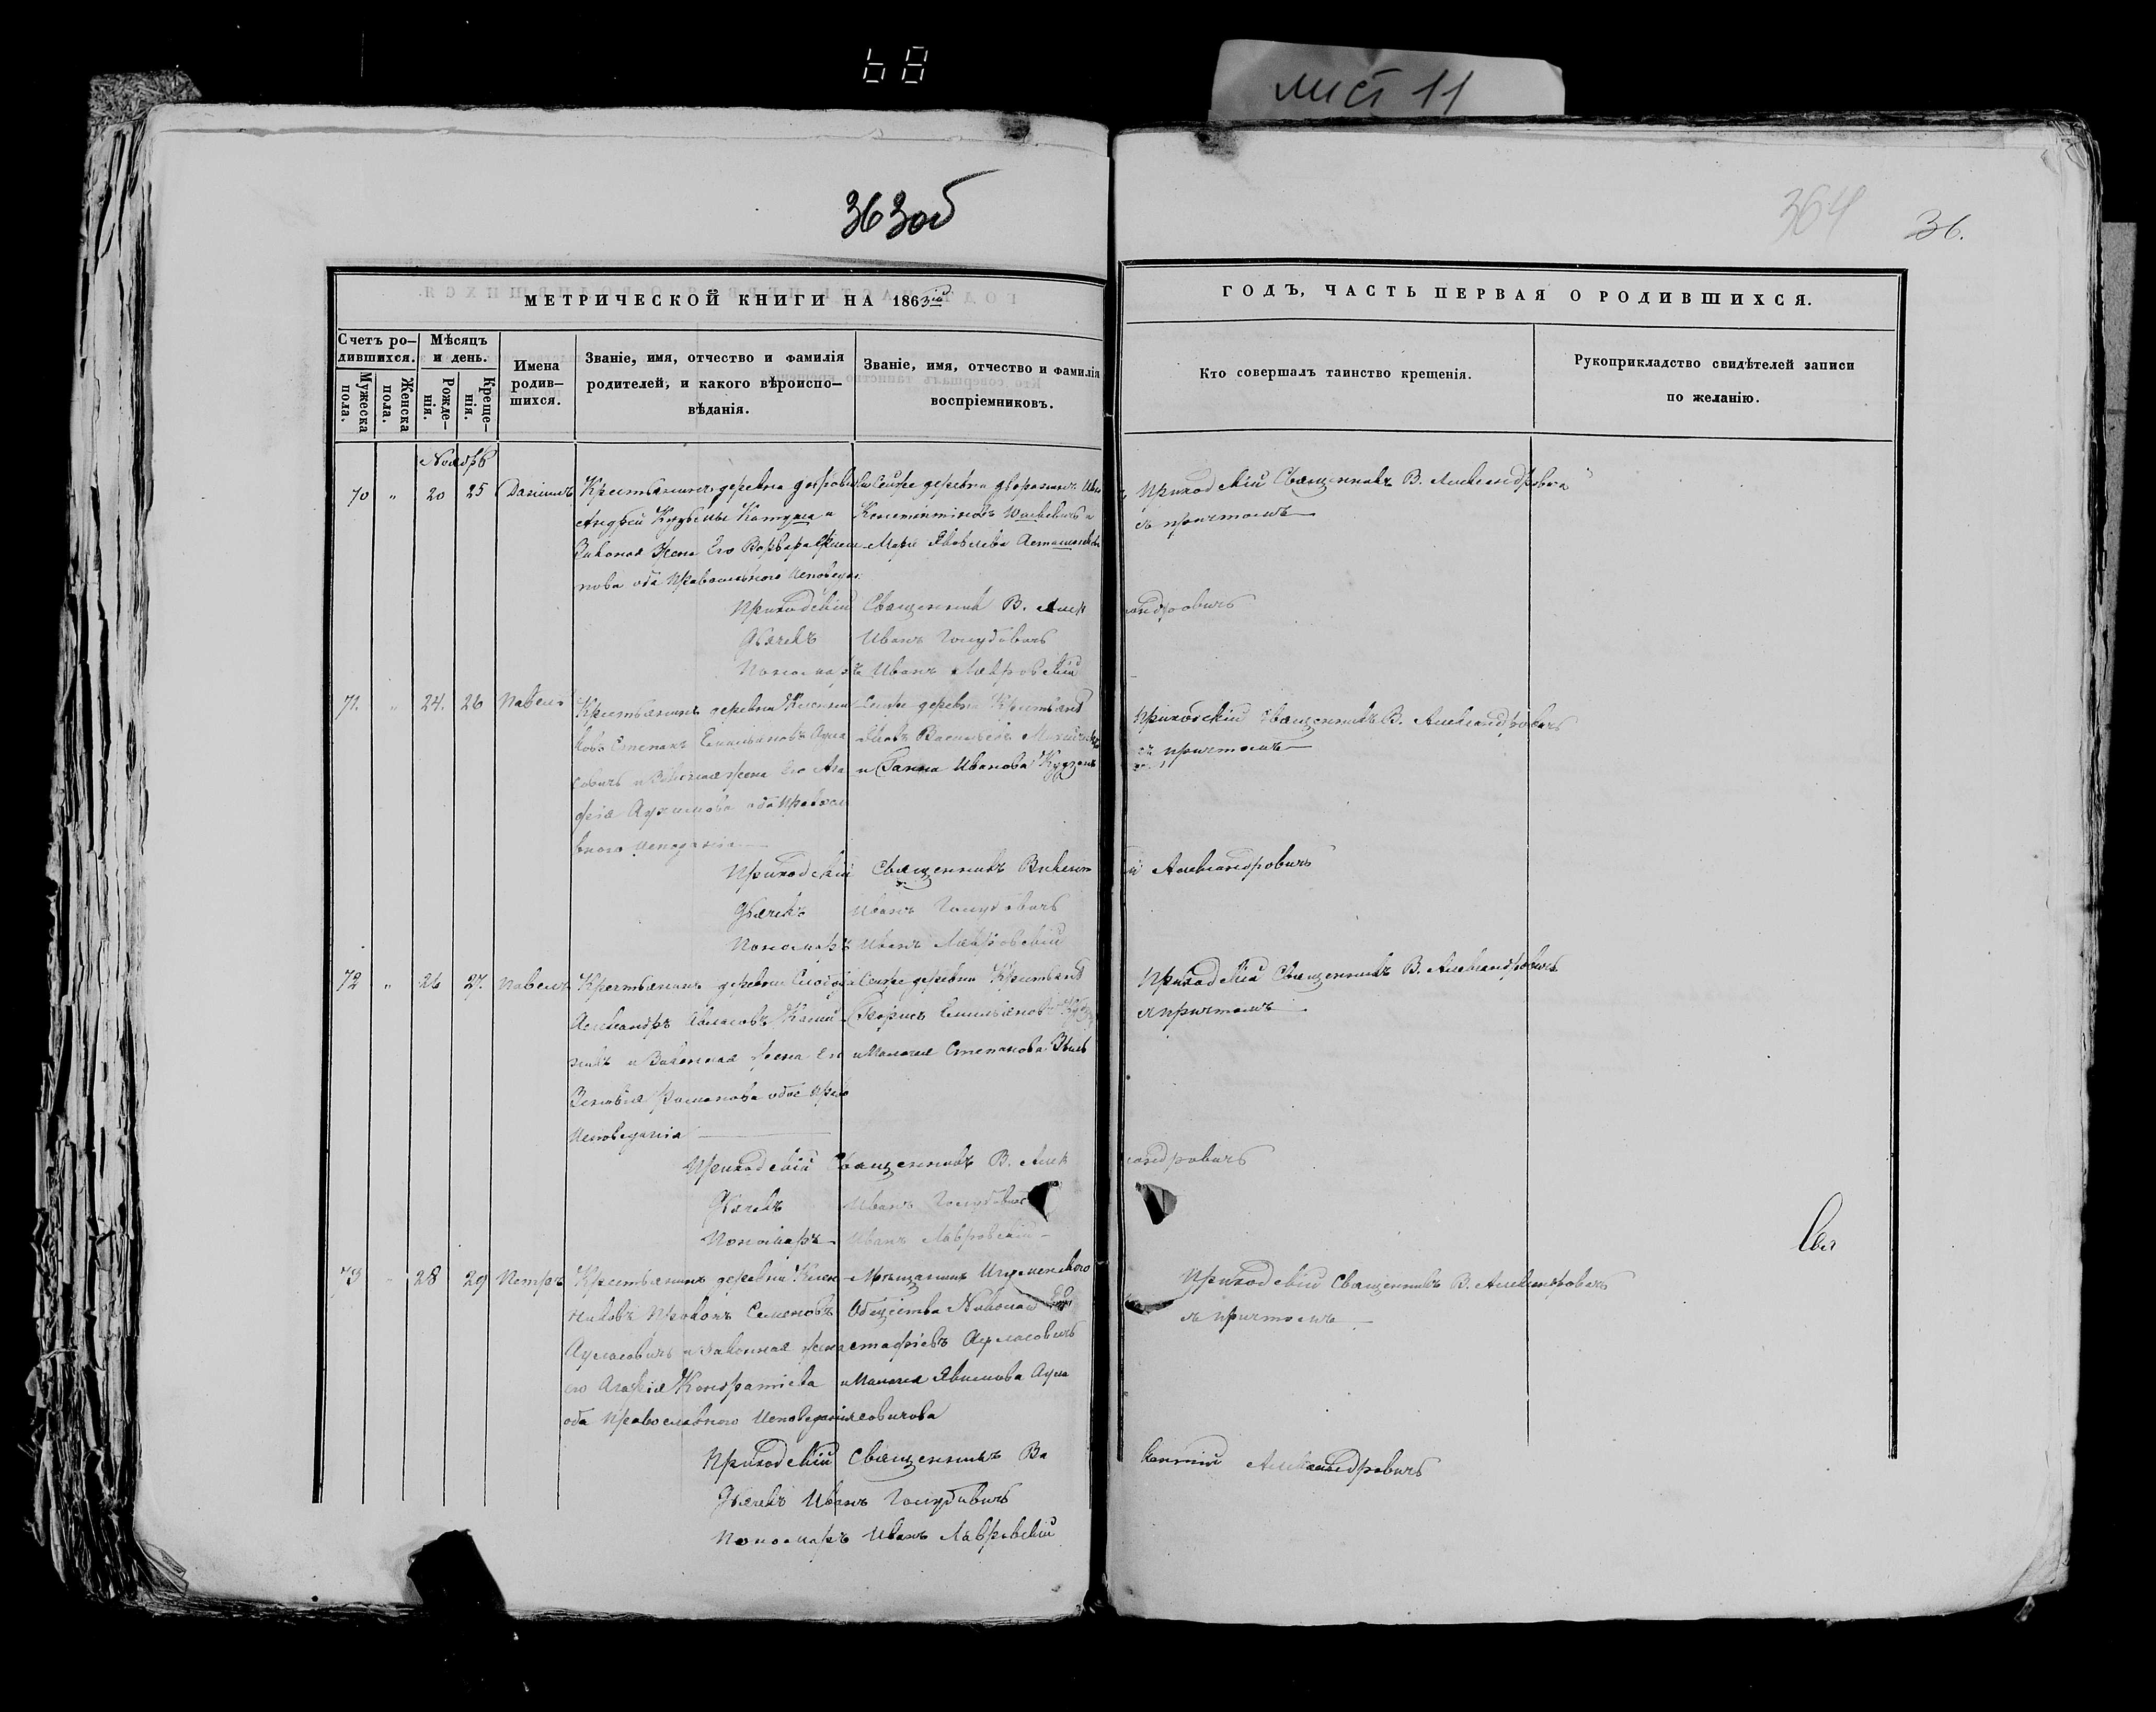 68
лист 11
363об
364
36.
МЕТРИЧЕСКОЙ КНИГИ НА 1863ій
ГОДЪ, ЧАСТЬ ПЕРВАЯ О РОДИВШИХСЯ.
Счетъ ро–
дившихся.
Мужеска
пола.
Женска
пола.
Мѣсяцъ
и день.
Рожде–
нія.
Креще–
нія.
Имена
родив–
шихся.
Званіе, имя, отчество и фамилія
родителей, и какого вѣроиспо–
вѣданія.
Званіе, имя, отчество и фамилія
воспріемниковъ.
Кто совершалъ таинство крещенія.
Рукоприкладство свидѣтелей записи
по желанію.
Ноябрь
70 " 20 25 Даніилъ
Крестьянинъ деревни
Андрей
Законая Жена Его Варвара
нова оба Православнаго Исповедан:
Сейже деревни дворянинъ
и
Марія Яковлева
Приходскій Священникъ В. Александровичъ
съ причтомъ
Приходскій Священникъ В. Александровичъ
Дьячекъ Иванъ Голубовичъ
Пономаръ Иванъ Лавровскій
71. " 24. 26 Павелъ
Крестьянинъ деревни
ковъ Степанъ Емильяновъ Аула
совичъ и Законая жена Его Ага
фія оба Правосла
внаго
Сейже деревни Крестьянъ
Яковъ Васильевъ
и Ганна Иванова
Приходскій Священникъ В. Александровичъ
съ причтомъ
Приходскій Священникъ Викентій Александровичъ
Дьячекъ Иванъ Голубовичъ
Пономаръ Иванъ Лавровскій
72 " 26 27. Павелъ
Крестьянинъ деревни Слобода
Александръ
и Законная жена Его
Зеновія Романова обое прав
Исповеданія
Сейже деревни Крестьянъ
Борисъ Емильяновъ
и Маланія Степанова
Приходскій Священникъ В. Александровичъ
съ причтомъ
Приходскій Священникъ В. Александровичъ
Дьячекъ Иванъ Голубовичъ
Пономаръ Иванъ Лавровскій
73 " 28 29 Петръ
Крестьянинъ деревни Клен
никовъ Прокопъ Семеновъ
Ауласовичъ и Законная жена
его Агафія Кондратіева
оба Православного Исповеданія
Мѣщанинъ Игуменского
Общества Николай Ев
стафіевъ Ауласовичъ
и Маланія Якимова Аула
совичова
Приходскій Священникъ В. Александровичъ
съ причтомъ
Приходскій Священникъ Викентій Александровичъ
Дьячекъ Иванъ Голубовичъ
Пономаръ Иванъ Лавровскій